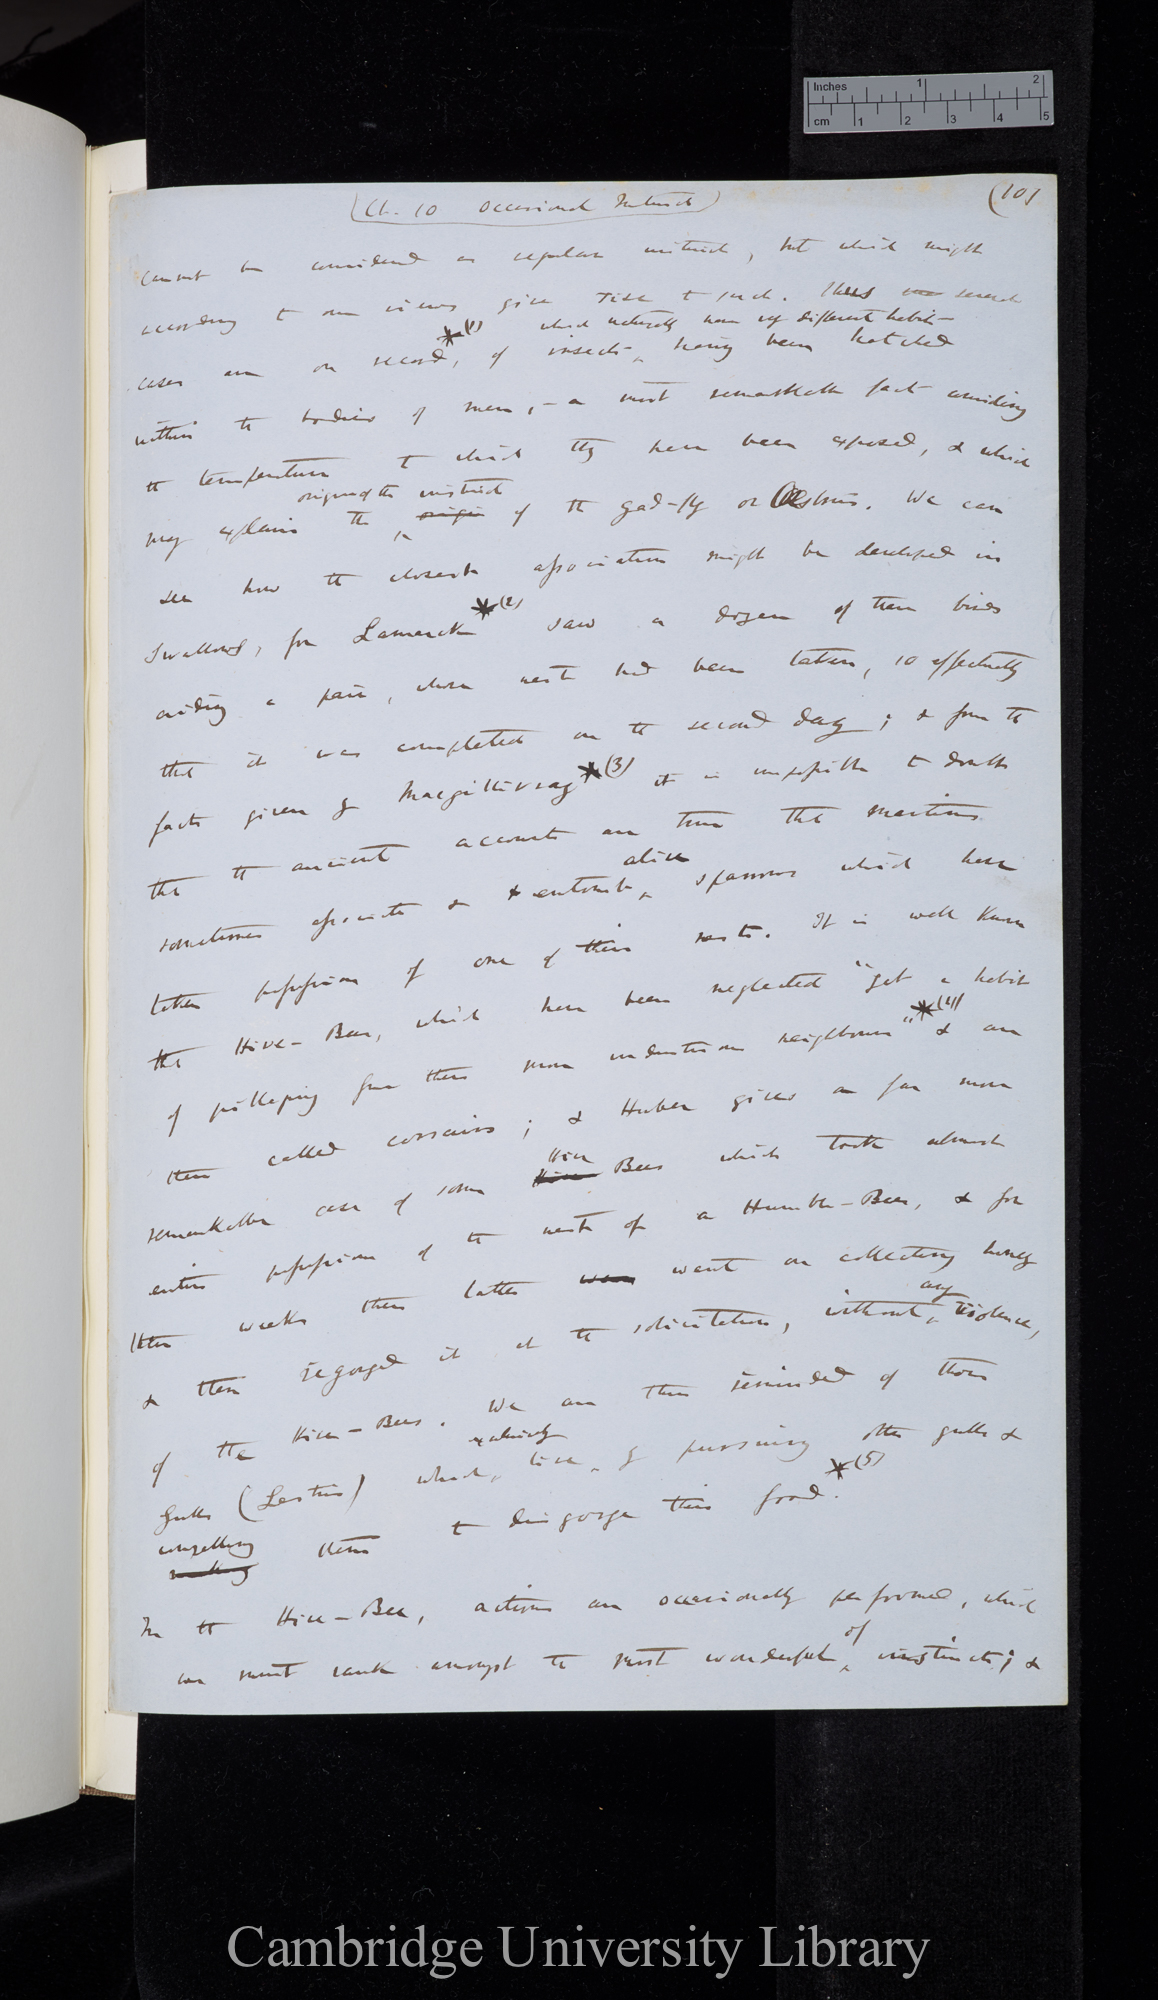 Inches 1 2
cm 1 2 3 4 5
(Ch. 10 Occasional Instincts)
(101
cannot be considered as regular instincts, but which might
according to our views give rise to such. Thus several
which naturally have very different habits
cases are on record, *(1) of insects, having been hatched
within the bodies of man, – a most remarkable fact considering
the temperature to which they have been exposed, & which
origin of the instinct
may explain the origin of the gad-fly or Oestrus. We can
see how the closest association might be developed in
Swallows, for Lamarck *(2) saw a dozen of these birds
aiding a pair, whose nest had been taken, so effectually
that it was completed on the second day; & from the
facts given by Macgillivray *(3) it is impossible to doubt
that the ancient accounts are true that the martins
alive
sometimes associate & entomb sparrows which have
taken possession of one of their nests. It is well known
the Hive-Bees, which have been neglected "get a habit
of pilfering from their more industrious neighbours" *(4) & are
then called corsairs; & Huber gives a far more
Hive
remarkable case of some Hive Bees which took almost
entire possession of the nest of a Humble-Bee, & for
three weeks these latter went on collecting honey
any
& then regorged it at the solicitation, without violence,
of the Hive-Bees. We are thus reminded of those
exclusively
Gulls (Lestris) which live by pursuing other gulls &
compelling
making them to disgorge their food. *(5)
In the Hive-Bee, actions are occasionally performed, which
of
we must rank amongst the most wonderful instincts; &
Cambridge University Library